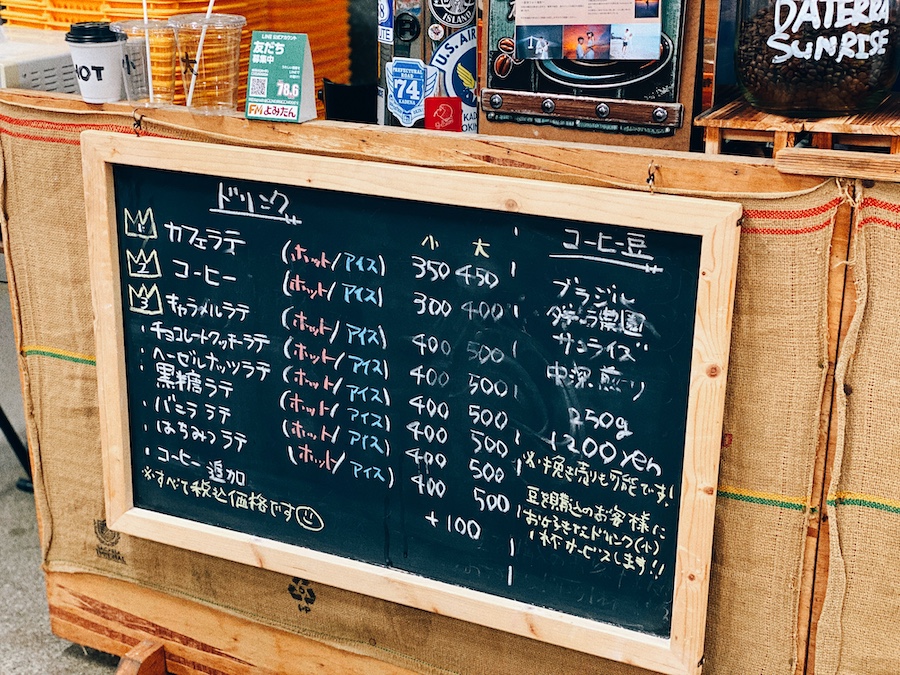 HOT
大
LINE公式アカウント
友だち
募集中
78.6
FMよみたん
ISLAND
U.S. AIR
PREFECTURAL ROAD
74
KADENA
DATERRA
SUNRISE
ドリンク
小 大
1 カフェラテ (ホット/アイス) 350 450
2 コーヒー (ホット/アイス) 300 400
3 キャラメルラテ (ホット/アイス) 400 500
・チョコレートクッキーラテ (ホット/アイス) 400 500
・ヘーゼルナッツラテ (ホット/アイス) 400 500
・黒糖ラテ (ホット/アイス) 400 500
・バニララテ (ホット/アイス) 400 500
・はちみつラテ (ホット/アイス) 400 500
・コーヒー追加 +100
※すべて税込価格です
コーヒー豆
ブラジル
ダテーラ農園
サンライズ
中深煎り
250g
1200yen
※挽き売りも可能です!
豆購入のお客様に
お好きなドリンク(小)
1杯サービスします!!